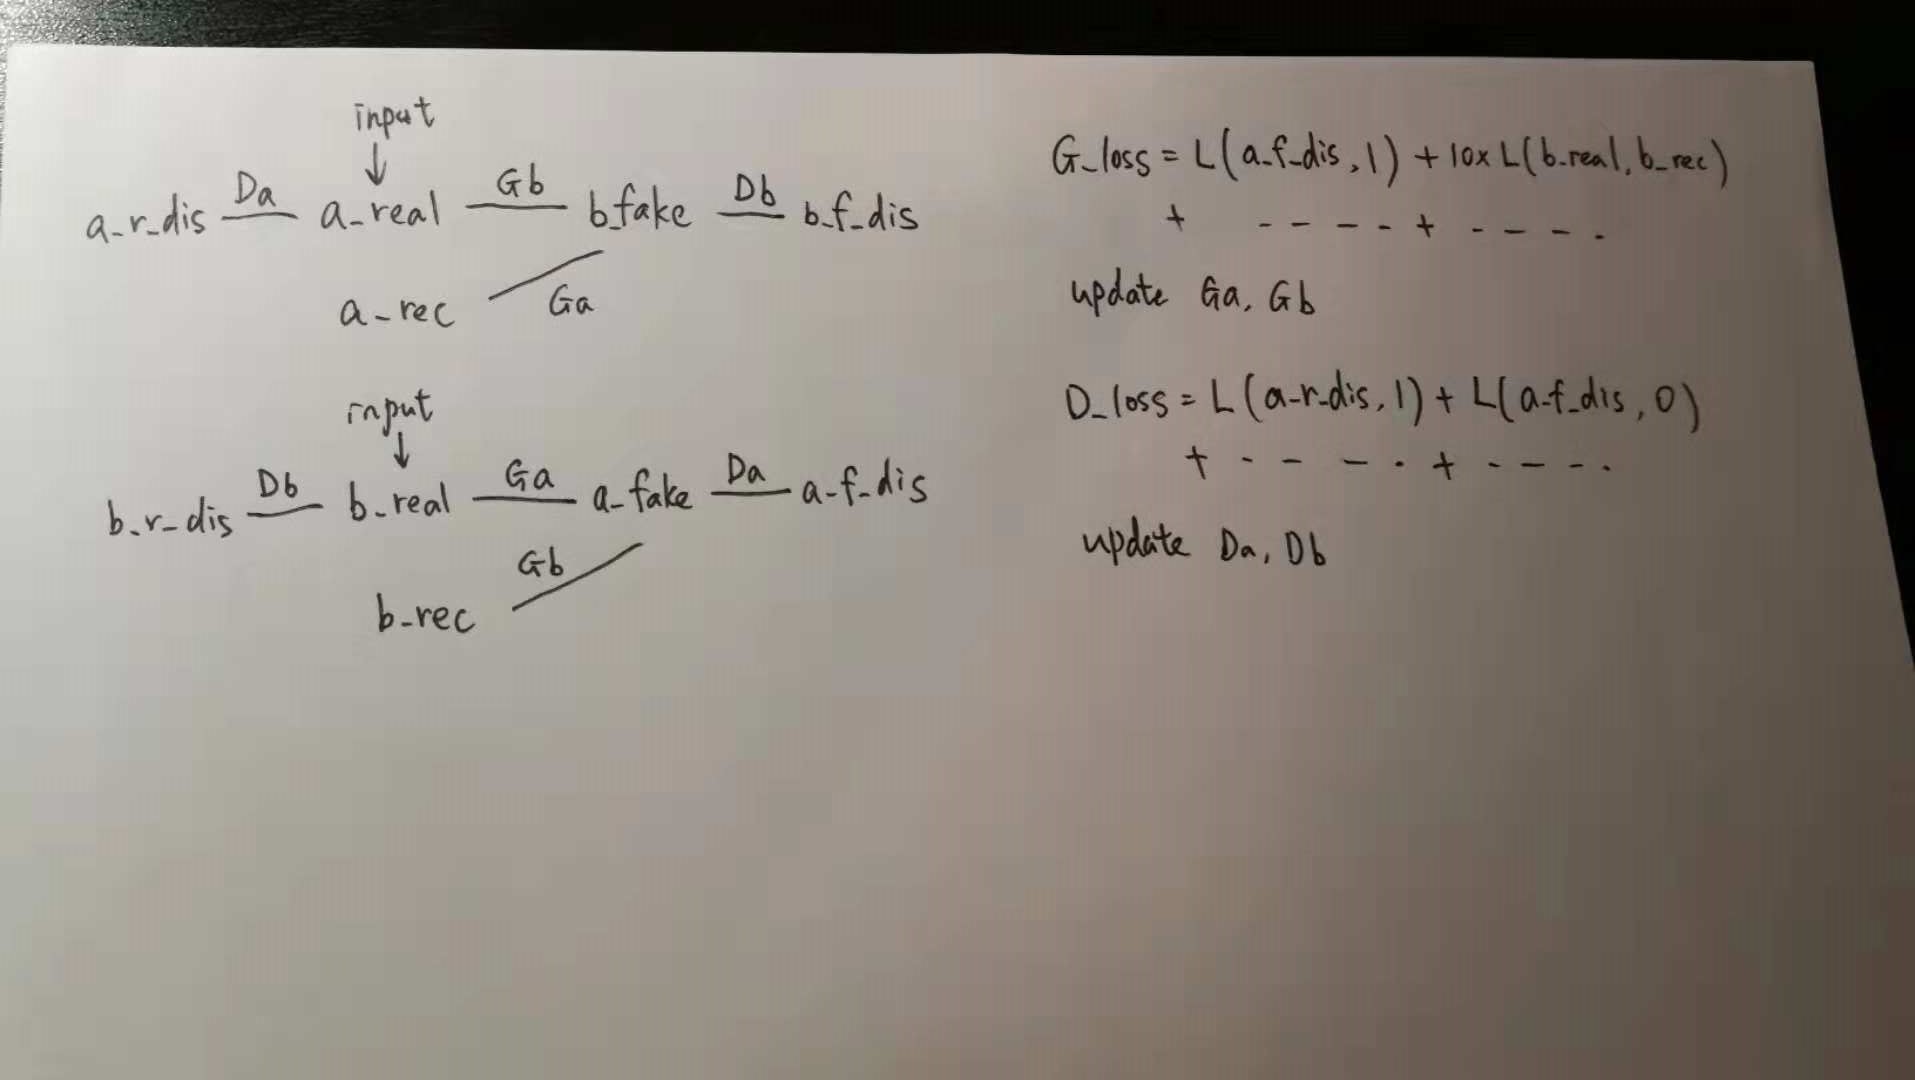 input
↓
a_r_dis —Da— a_real —Gb— b_fake —Db— b_f_dis
a_rec —Ga
input
↓
b_r_dis —Db— b_real —Ga— a_fake —Da— a_f_dis
Gb
b_rec —
G_loss = L(a_f_dis, 1) + 10x L(b_real, b_rec)
+ - - - - + - - - -
update Ga, Gb
D_loss = L(a_r_dis, 1) + L(a_f_dis, 0)
+ - - - - + - - - -
update Da, Db